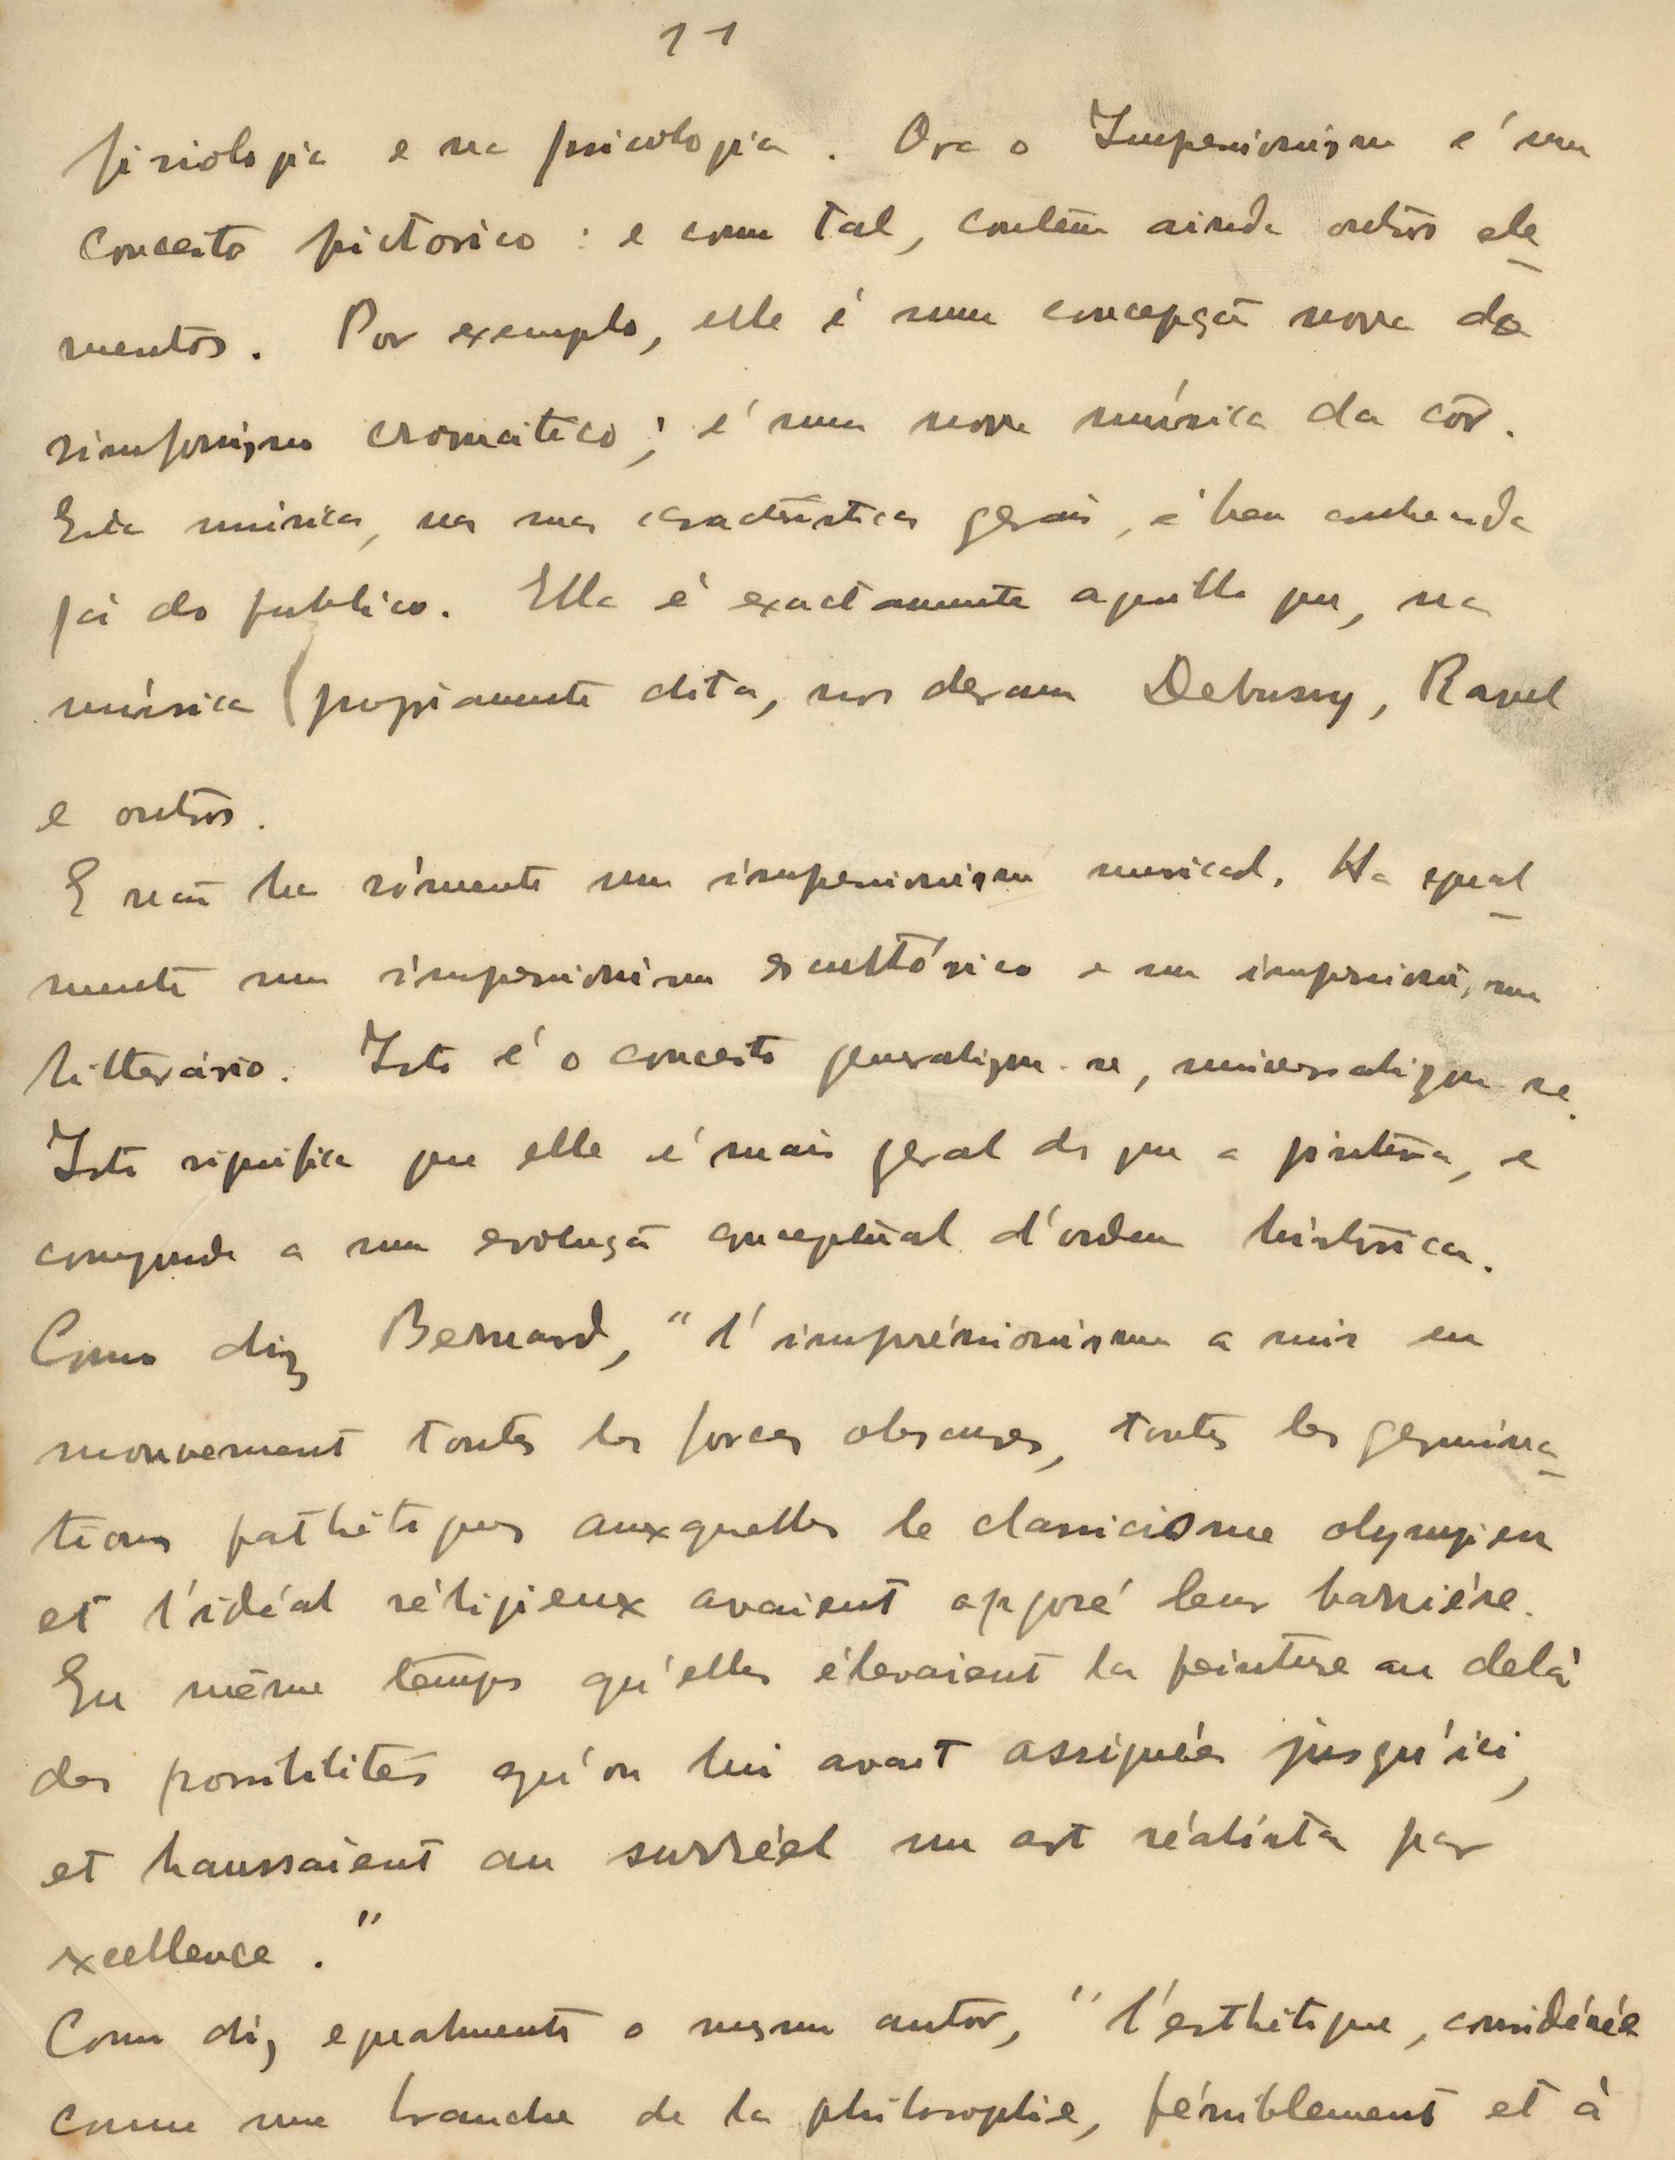 11
fisiologia e na psicologia. Ora o Impressionismo é um
conceito pictorico: e como tal, contém ainda outros ele-
mentos. Por exemplo, elle é uma concepção nova do
sinfonismo cromatico; é uma nova música da côr.
Esta música, nas suas caracteristicas gerais, é bem conhecida
já do publico. Ella é exactamente aquella que, na
música propriamente dita, nos deram Debussy, Ravel
e outros.
E não ha sómente um impressionismo musical. Ha egual-
mente um impressionismo escultórico e um impressionismo
litterário. Isto é o conceito generalizou-se, universalizou-se.
Isto significa que elle é mais geral do que a pintura, e
corresponde a uma evolução conceptual d'ordem histórica.
Como diz Bernard, "l'impréssionisme a mis en
mouvement toutes les forces obscures, toutes les germina-
tions pathétiques auxquelles le classicisme olympien
et l'idéal réligieux avaient opposé leur barriére.
En même temps qu'elles élevaient la peinture au delà
des possibilités qu'on lui avait assignées jusqu'ici,
et haussaient au surréel un art réaliste par
excellence."
Como diz egualmente o mesmo autor, "l'esthétique, considérée
comme une branche de la philosophie, péniblement et à